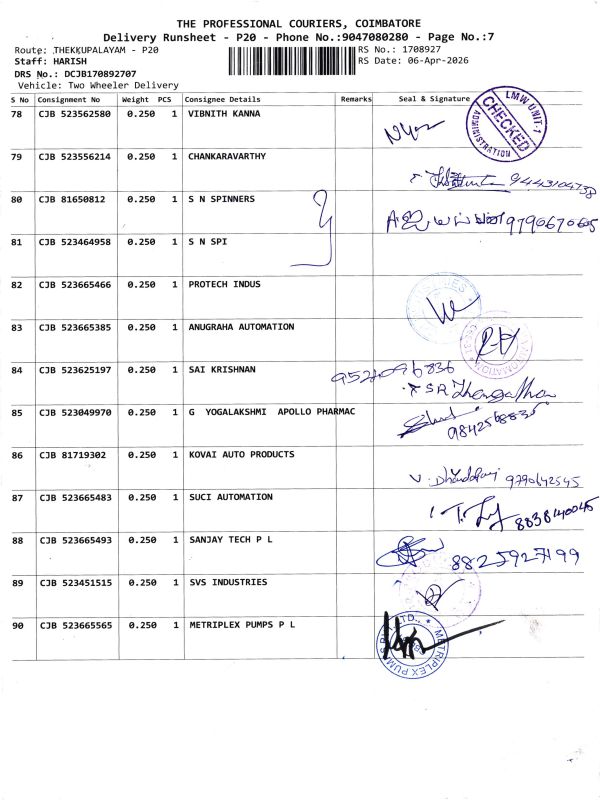 THE PROFESSIONAL COURIERS, COIMBATORE
Delivery Runsheet - P20 - Phone No.:9047080280 - Page No.:7
Route: THEKKUPALAYAM - P20
RS No.: 1708927
Staff: HARISH
RS Date: 06-Apr-2026
DRS No.: DCJB170892707
Vehicle: Two Wheeler Delivery
S No Consignment No Weight PCS Consignee Details Remarks Seal & Signature
LMW UNIT-1
CHECKED
ADMINISTRATION
78 CJB 523562580 0.250 1 VIBNITH KANNA
79 CJB 523556214 0.250 1 CHANKARAVARTHY
80 CJB 81650812 0.250 1 S N SPINNERS
9790670605
81 CJB 523464958 0.250 1 S N SPI
82 CJB 523665466 0.250 1 PROTECH INDUS
83 CJB 523665385 0.250 1 ANUGRAHA AUTOMATION
84 CJB 523625197 0.250 1 SAI KRISHNAN
9521096836
85 CJB 523049970 0.250 1 G YOGALAKSHMI APOLLO PHARMAC
9842568835
86 CJB 81719302 0.250 1 KOVAI AUTO PRODUCTS
9790642545
87 CJB 523665483 0.250 1 SUCI AUTOMATION
8838140045
88 CJB 523665493 0.250 1 SANJAY TECH P L
8825927199
89 CJB 523451515 0.250 1 SVS INDUSTRIES
90 CJB 523665565 0.250 1 METRIPLEX PUMPS P L
METRIPLEX PUMPS